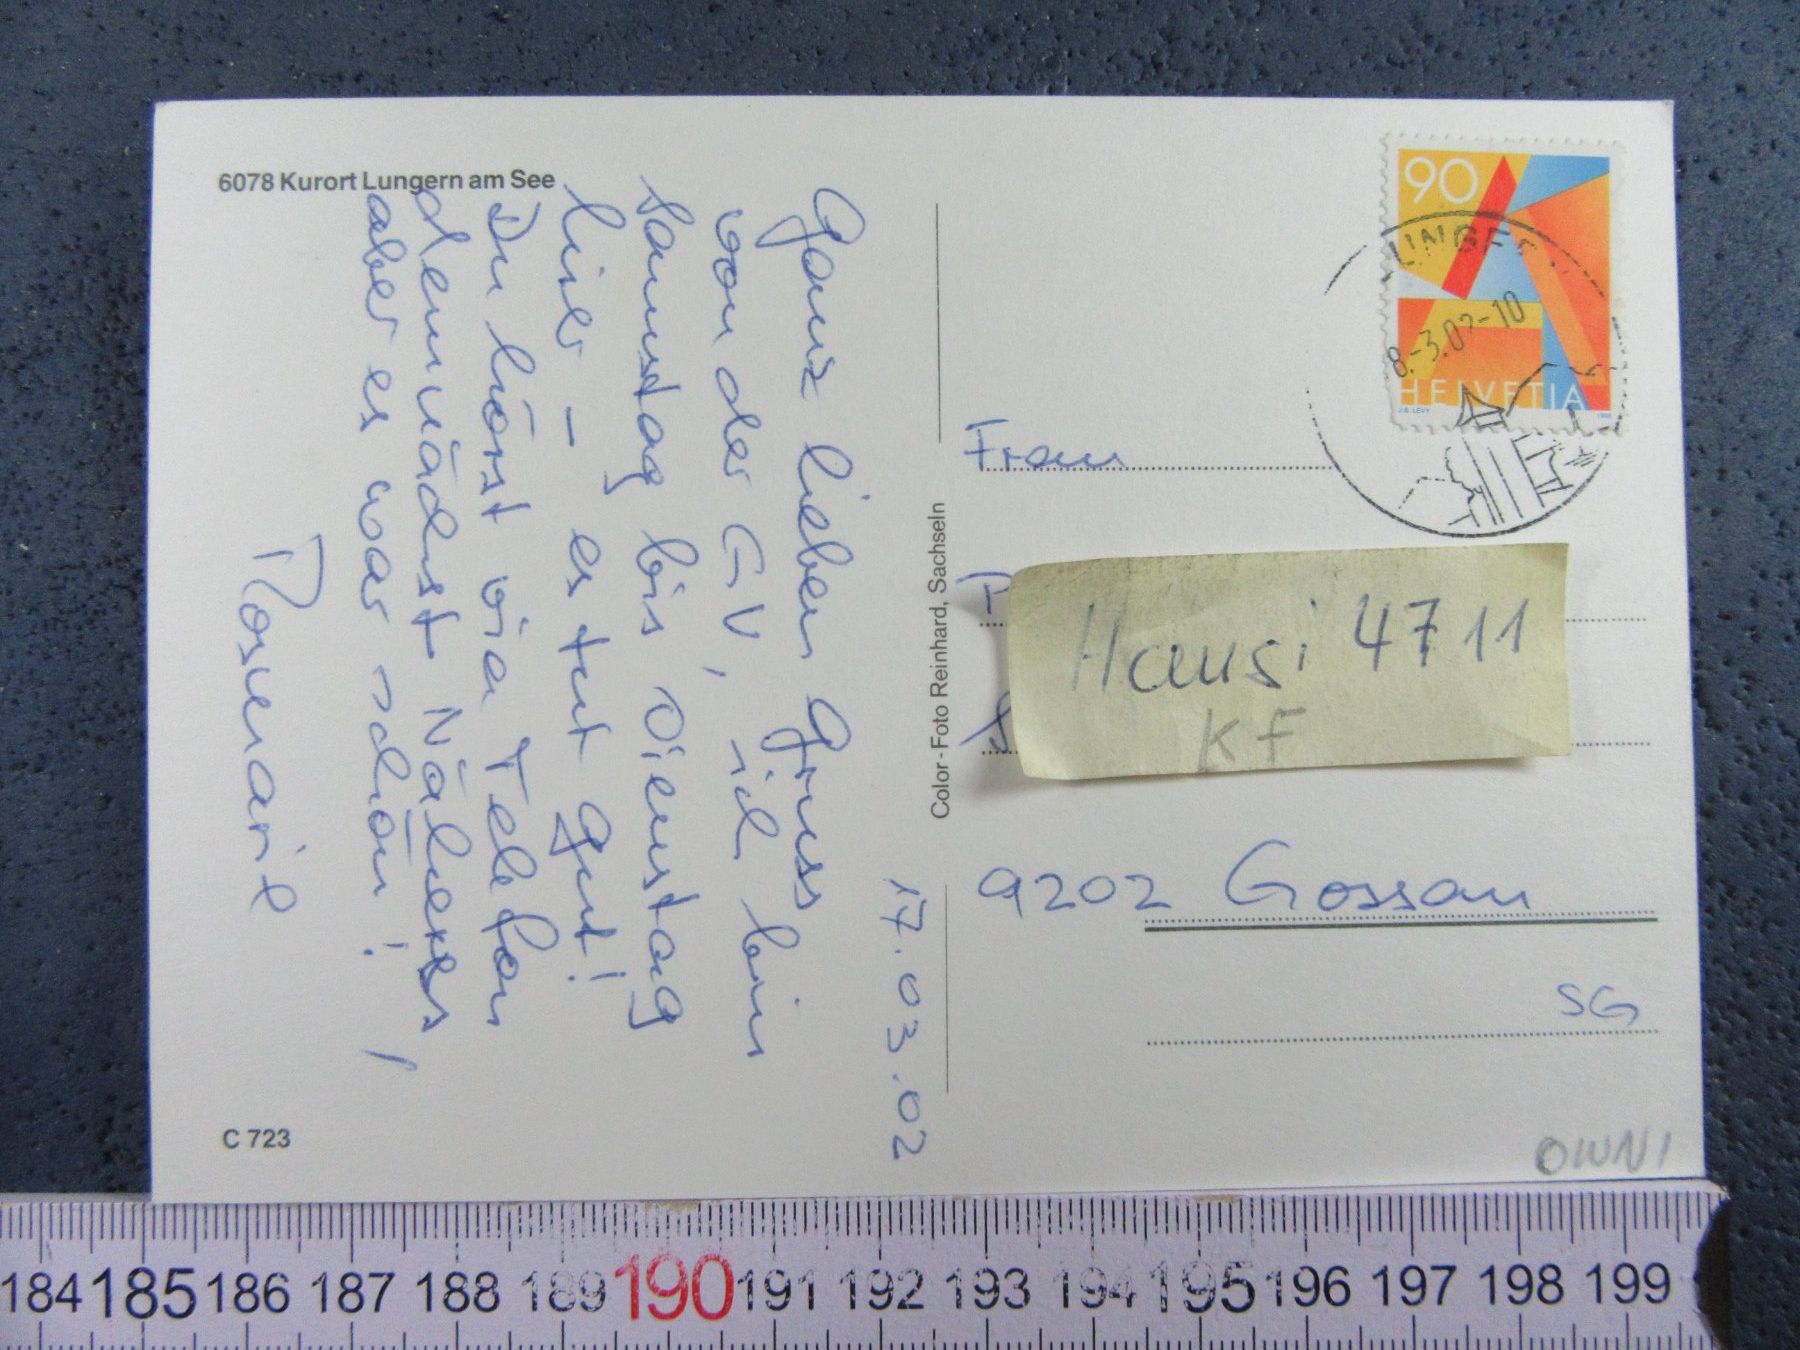 6078 Kurort Lungern am See
17.03.02
Ganz lieben Gruss
von der GV, ich bin
Samstag bis Dienstag
hier – es tut gut!
Du hörst via Telefon
demnächst Näheres,
aber es war schön!
Rosmarie
C 723
Color - Foto Reinhard, Sachseln
90
HELVETIA
J.B. LEVY
LUNGE
8.-3.02-10
Frau
Hausi 4711
KF
9202 Gossau
SG
OWNI
184 185 186 187 188 189 190 191 192 193 194 195 196 197 198 199